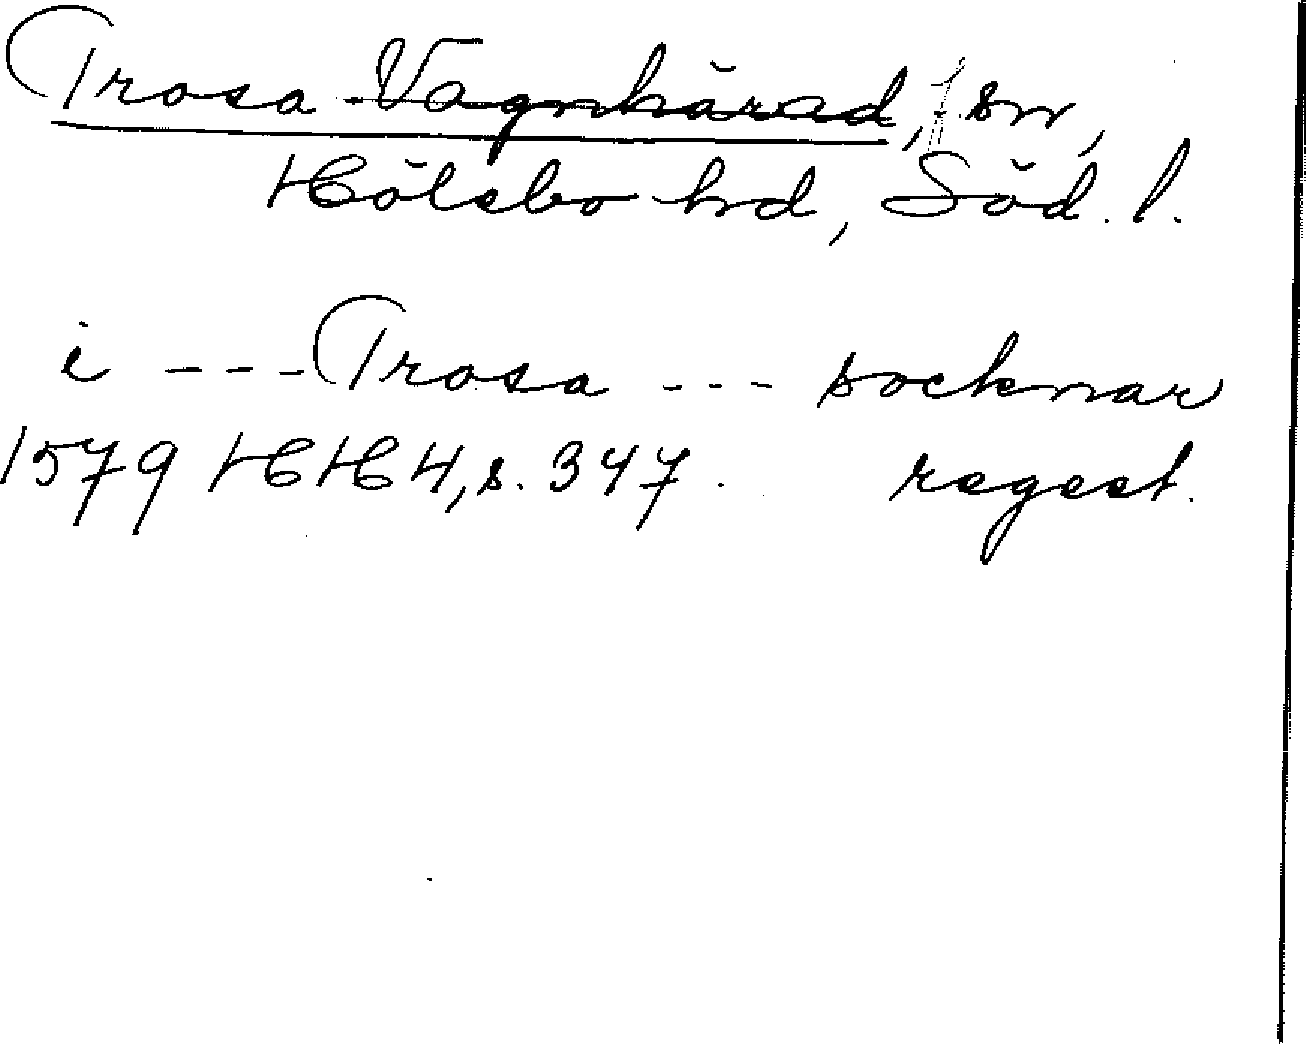 Trosa-Vagnhärad, sn,
Hölebo hd, Söd. l.
i --- Trosa --- socknar
1579 HH 4, s. 347. regest.